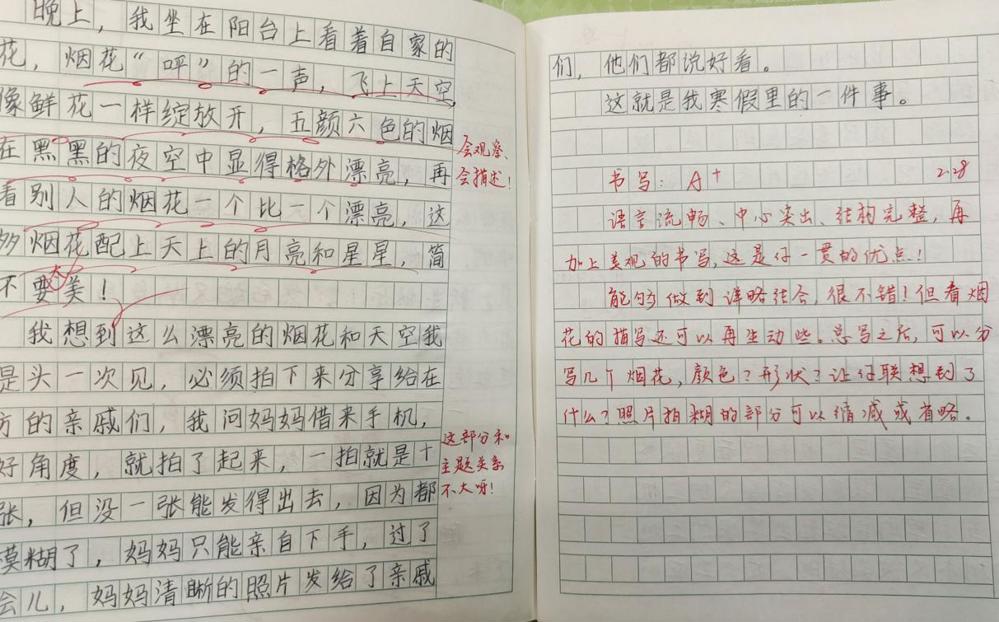 晚上，我坐在阳台上看着自家的
花，烟花“呯”的一声，飞上天空，
像鲜花一样绽放开，五颜六色的烟
在黑黑的夜空中显得格外漂亮，再
看别人的烟花一个比一个漂亮，这
多烟花配上天上的月亮和星星，简
不要太美！
会观察、
会描述！
我想到这么漂亮的烟花和天空我
是头一次见，必须拍下来分享给在
方的亲戚们，我问妈妈借来手机，
好角度，就拍了起来，一拍就是十
张，但没一张能发得出去，因为都
模糊了，妈妈只能亲自下手，过了
会儿，妈妈清晰的照片发给了亲戚
这部分和
主题关系
不大呀！
们，他们都说好看。
这就是我寒假里的一件事。
书写：A+ 2.28
语言流畅、中心突出、结构完整，再
加上美观的书写，这是仔一贯的优点！
能够做到详略结合，很不错！但看烟
花的描写还可以再生动些。总写之后，可以分
写几个烟花，颜色？形状？让仔联想到了
什么？照片拍糊的部分可以缩减或省略。